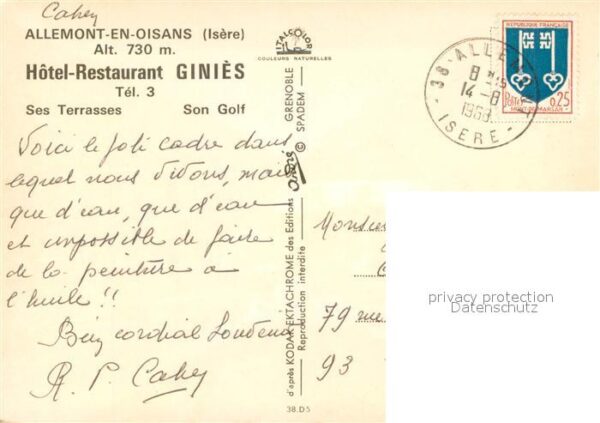 Cahey
ALLEMONT-EN-OISANS (Isère)
Alt. 730 m.
Hôtel-Restaurant GINIÈS
Tél. 3
Ses Terrasses Son Golf
Voici le joli cadre dans
lequel nous vivons, mais
que d'eau, que d'eau
et impossible de faire
de la peinture à
l'huile !!
Bien cordial
R. P. Cahey
ITALCOLOR
COULEURS NATURELLES
GRENOBLE
SPADEM
André
d'après KODAK EKTACHROME des Editions
Reproduction interdite
38.D5
38-ALLEM
8 H
14-8
ISERE
REPUBLIQUE FRANCAISE
Postes 0,25
MONT-DE-MARSAN
Monsieu
79 rue
93
privacy protection
Datenschutz